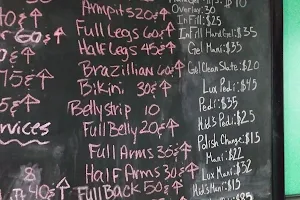 Armpits 20&↑
Full Legs 60&↑
Half Legs 45&↑
Brazillian 60&↑
Bikini 30&↑
Bellystrip 10
Full Belly 20&↑
Full Arms 35&↑
Half Arms 30&↑
Full Back 50&↑
Overlay: 30
InFill: $25
InFill Hard Gel: $35
Gel Mani: $35
Gel Clean Slate: $20
Lux Pedi: $45
Pedi: $35
Kid's Pedi: $25
Polish Change: $15
Mani: $22
Lux Mani: $32
Kid's Mani: $15
0&↑
rvices
8
40&↑